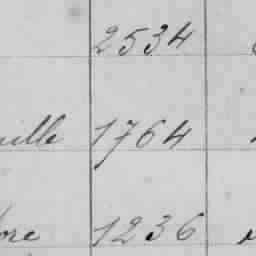 2534
ille 1764
ore 1236